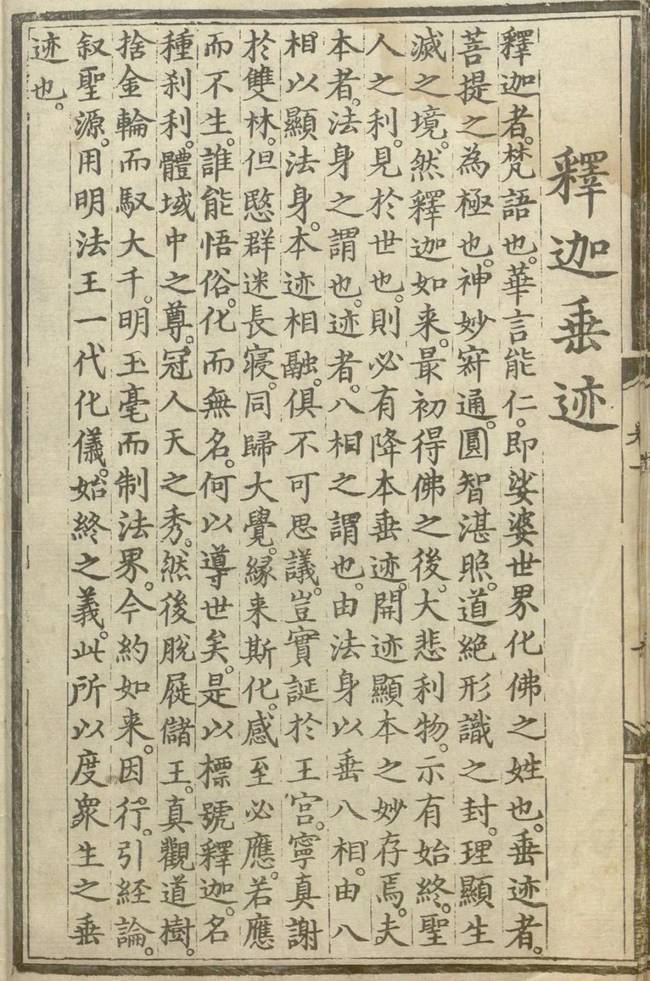 釋迦垂迹
釋迦者。梵語也。華言能仁。即娑婆世界化佛之姓也。垂迹者。
菩提之為極也。神妙寂通。圓智湛照。道絶形識之封。理顯生
滅之境。然釋迦如来。最初得佛之後。大悲利物。示有始終。聖
人之利。見於世也。則必有降本垂迹。開迹顯本之妙存焉。夫
本者。法身之謂也。迹者。八相之謂也。由法身以垂八相。由八
相以顯法身。本迹相融。俱不可思議。豈實誕於王宮。寧真謝
於雙林。但愍群迷長寝。同歸大覺。緣来斯化。感至必應。若應
而不生。誰能悟俗。化而無名。何以導世矣。是以標號釋迦。名
種刹利。體域中之尊。冠人天之秀。然後脫屣儲王。真觀道樹。
捨金輪而馭大千。明玉毫而制法界。今約如来。因行。引経論。
叙聖源。用明法王一代化儀。始終之義。此所以度衆生之垂
迹也。